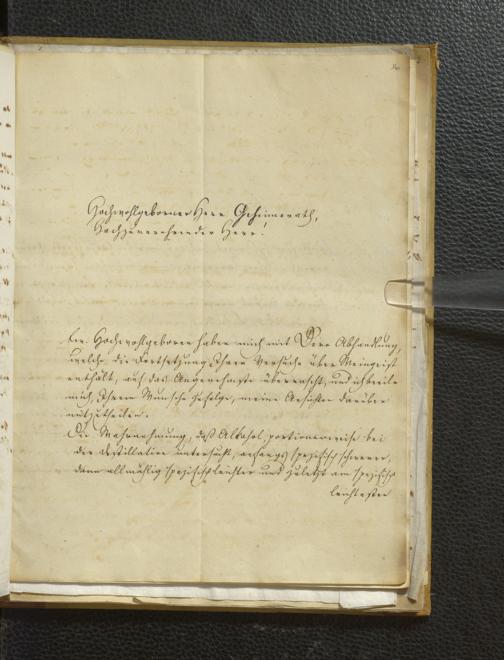 Hochwohlgeborner Herr Geheimerath,
Hochzuverehrender Herr!
Ew. Hochwohlgeboren haben mich mit Dero Abhandlung,
welche die Fortsetzung Ihrer Versuche über Weingeist
enthält, auf das Angenehmste überrascht, und ich eile
mich, Ihrem Wunsche zufolge, meine Ansichten darüber
mitzutheilen.
Die Wahrnehmung, daß Alkohol portionenweise bei
der Destillation untersucht, anfangs spezifisch schwerer,
dann allmählig spezifisch leichter und zuletzt am spezifisch
leichtesten